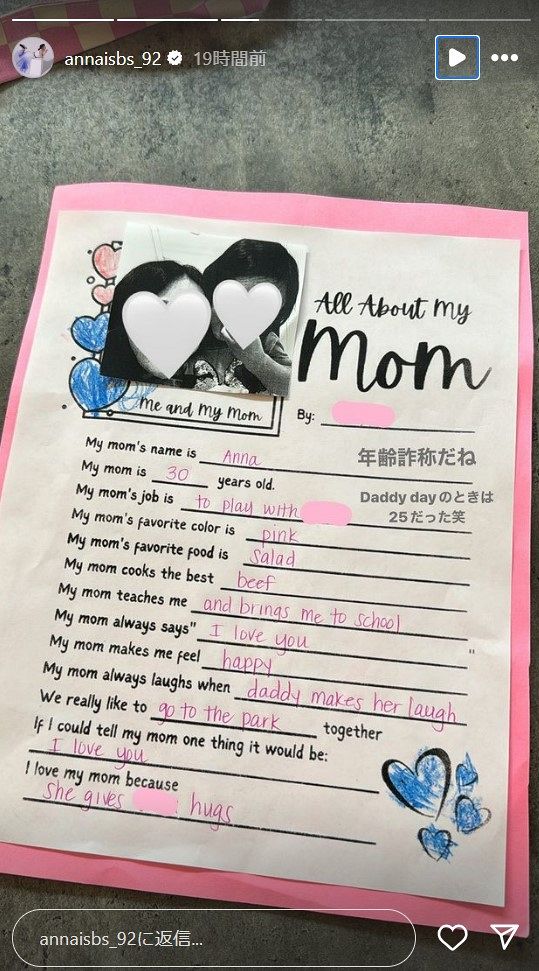 annaisbs_92 19時間前
All About My
Mom
Me and My Mom
By:
My mom's name is Anna
年齢詐称だね
My mom is 30 years old.
Daddy dayのときは
25だった笑
My mom's job is to play with
My mom's favorite color is pink
My mom's favorite food is salad
My mom cooks the best beef
My mom teaches me and brings me to school
My mom always says" I love you "
My mom makes me feel happy
My mom always laughs when daddy makes her laugh
We really like to go to the park together
If I could tell my mom one thing it would be:
I love you
I love my mom because
she gives hugs
annaisbs_92に返信...